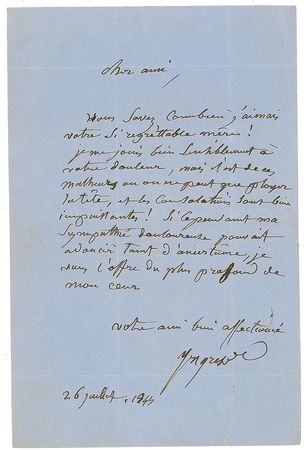 cher ami,
Vous Savez Combien j'aimais
votre Si regrettable mère !
je me joins bien Sensiblement à
votre douleur, mais c'est de ces
malheurs où on ne peut que ployer
la tête, et les Consolations Sont bien
impuissantes ! Si Cependant ma
Sympathie douloureuse pouvait
adoucir tant d'amertume, je
vous l'offre du plus profond de
mon cœur
votre ami bien affectionné
Ingres
26 juillet,